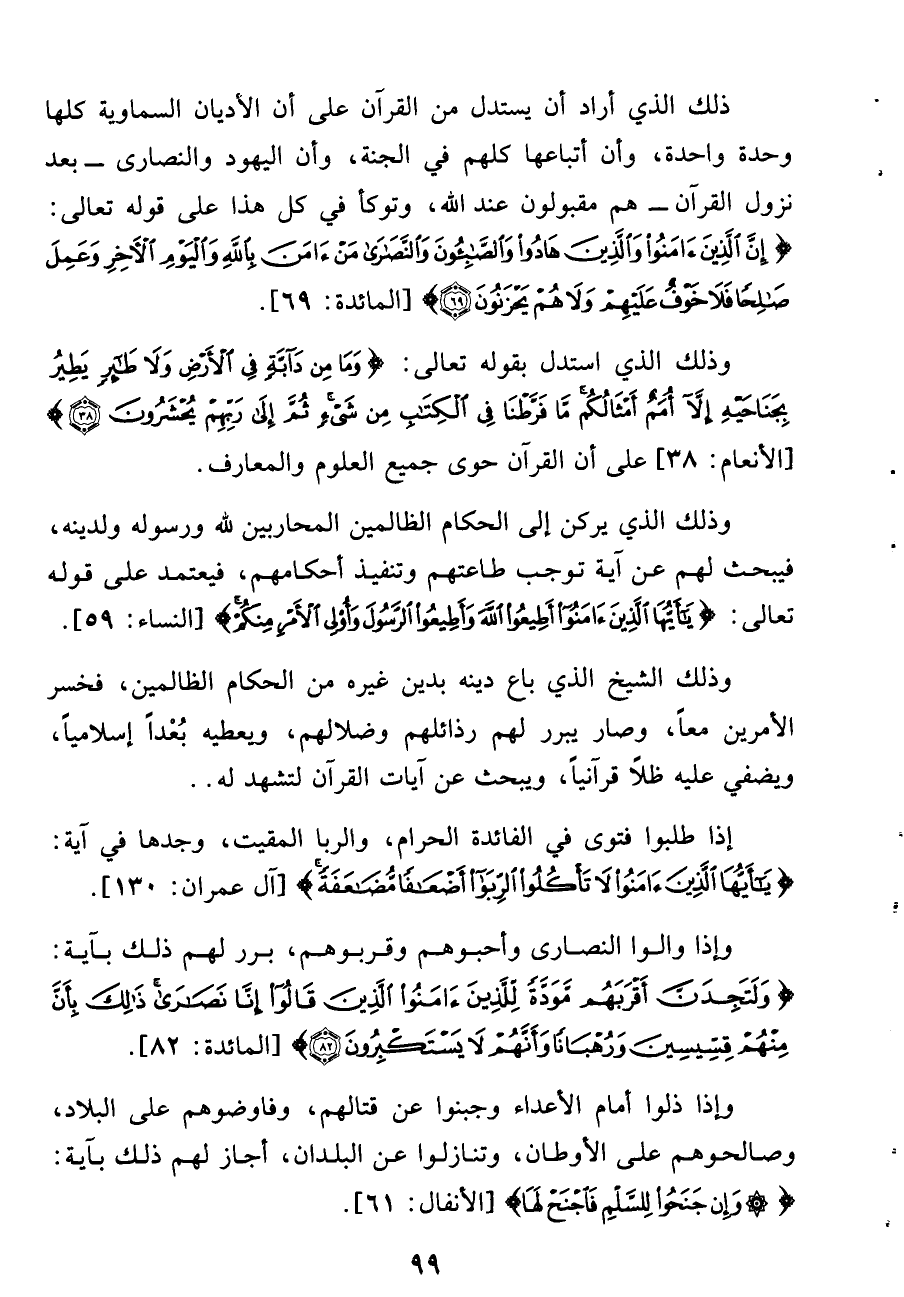 ذلك الذي أراد أن يستدل من القرآن على أن الأديان السماوية كلها
وحدة واحدة، وأن أتباعها كلهم في الجنة، وأن اليهود والنصارى ــ بعد
نزول القرآن ــ هم مقبولون عند الله، وتوكأ في كل هذا على قوله تعالى:
﴿ إِنَّ الَّذِينَ ءَامَنُوا۟ وَالَّذِينَ هَادُوا۟ وَالصَّٰبِـُٔونَ وَالنَّصَٰرَىٰ مَنْ ءَامَنَ بِاللَّهِ وَالْيَوْمِ الْأٓخِرِ وَعَمِلَ
صَٰلِحًا فَلَا خَوْفٌ عَلَيْهِمْ وَلَا هُمْ يَحْزَنُونَ ٦٩﴾ [المائدة: ٦٩].
وذلك الذي استدل بقوله تعالى: ﴿ وَمَا مِن دَآبَّةٍ فِى الْأَرْضِ وَلَا طَٰٓئِرٍ يَطِيرُ
بِجَنَاحَيْهِ إِلَّآ أُمَمٌ أَمْثَالُكُم ۚ مَّا فَرَّطْنَا فِى الْكِتَٰبِ مِن شَىْءٍ ۚ ثُمَّ إِلَىٰ رَبِّهِمْ يُحْشَرُونَ ٣٨ ﴾
[الأنعام: ٣٨] على أن القرآن حوى جميع العلوم والمعارف.
وذلك الذي يركن إلى الحكام الظالمين المحاربين لله ورسوله ولدينه،
فيبحث لهم عن آية توجب طاعتهم وتنفيذ أحكامهم، فيعتمد على قوله
تعالى: ﴿ يَٰٓأَيُّهَا الَّذِينَ ءَامَنُوٓا۟ أَطِيعُوا۟ اللَّهَ وَأَطِيعُوا۟ الرَّسُولَ وَأُو۟لِى الْأَمْرِ مِنكُمْ ۚ﴾ [النساء: ٥٩].
وذلك الشيخ الذي باع دينه بدين غيره من الحكام الظالمين، فخسر
الأمرين معاً، وصار يبرر لهم رذائلهم وضلالهم، ويعطيه بُعْداً إسلامياً،
ويضفي عليه ظلاً قرآنياً، ويبحث عن آيات القرآن لتشهد له..
إذا طلبوا فتوى في الفائدة الحرام، والربا المقيت، وجدها في آية:
﴿ يَٰٓأَيُّهَا الَّذِينَ ءَامَنُوا۟ لَا تَأْكُلُوا۟ الرِّبَوٰٓا۟ أَضْعَٰفًا مُّضَٰعَفَةً ۖ﴾ [آل عمران: ١٣٠].
وإذا والوا النصارى وأحبوهم وقربوهم، برر لهم ذلك بآية:
﴿ وَلَتَجِدَنَّ أَقْرَبَهُم مَّوَدَّةً لِّلَّذِينَ ءَامَنُوا۟ الَّذِينَ قَالُوٓا۟ إِنَّا نَصَٰرَىٰ ۚ ذَٰلِكَ بِأَنَّ
مِنْهُمْ قِسِّيسِينَ وَرُهْبَانًا وَأَنَّهُمْ لَا يَسْتَكْبِرُونَ ٨٢﴾ [المائدة: ٨٢].
وإذا ذلوا أمام الأعداء وجبنوا عن قتالهم، وفاوضوهم على البلاد،
وصالحوهم على الأوطان، وتنازلوا عن البلدان، أجاز لهم ذلك بآية:
﴿ ۞ وَإِن جَنَحُوا۟ لِلسَّلْمِ فَاجْنَحْ لَهَا﴾ [الأنفال: ٦١].
٩٩